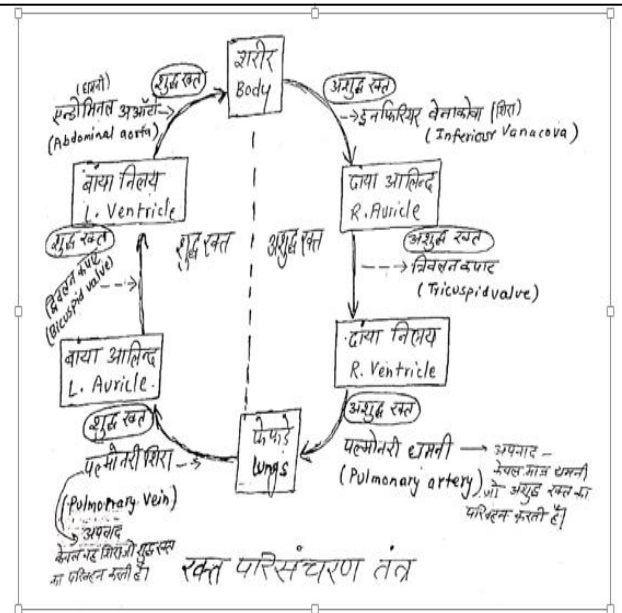 शरीर
Body
शुद्ध रक्त
(धमनी)
एब्डोमिनल अओर्टा
(Abdominal aorta)
अशुद्ध रक्त
इनफिरियर वेनाकोवा (शिरा)
(Inferiosr Vanacova)
बांया निलय
L. Ventricle
दांया आलिन्द
R. Auricle
शुद्ध रक्त
शुद्ध रक्त
अशुद्ध रक्त
अशुद्ध रक्त
द्विवलन कपाट
(Bicuspid valve)
त्रिवलन कपाट
(Tricuspid valve)
बांया आलिन्द
L. Auricle.
दांया निलय
R. Ventricle
शुद्ध रक्त
फेफडे
lungs
अशुद्ध रक्त
पल्मोनरी शिरा
(Pulmonary vein)
अपवाद
केवल यह शिरा जो शुद्ध रक्त
का परिवहन करती है।
पल्मोनरी धमनी
(Pulmonary artery)
अपवाद –
केवल मात्र धमनी
जो अशुद्ध रक्त का
परिवहन करती है।
रक्त परिसंचरण तंत्र